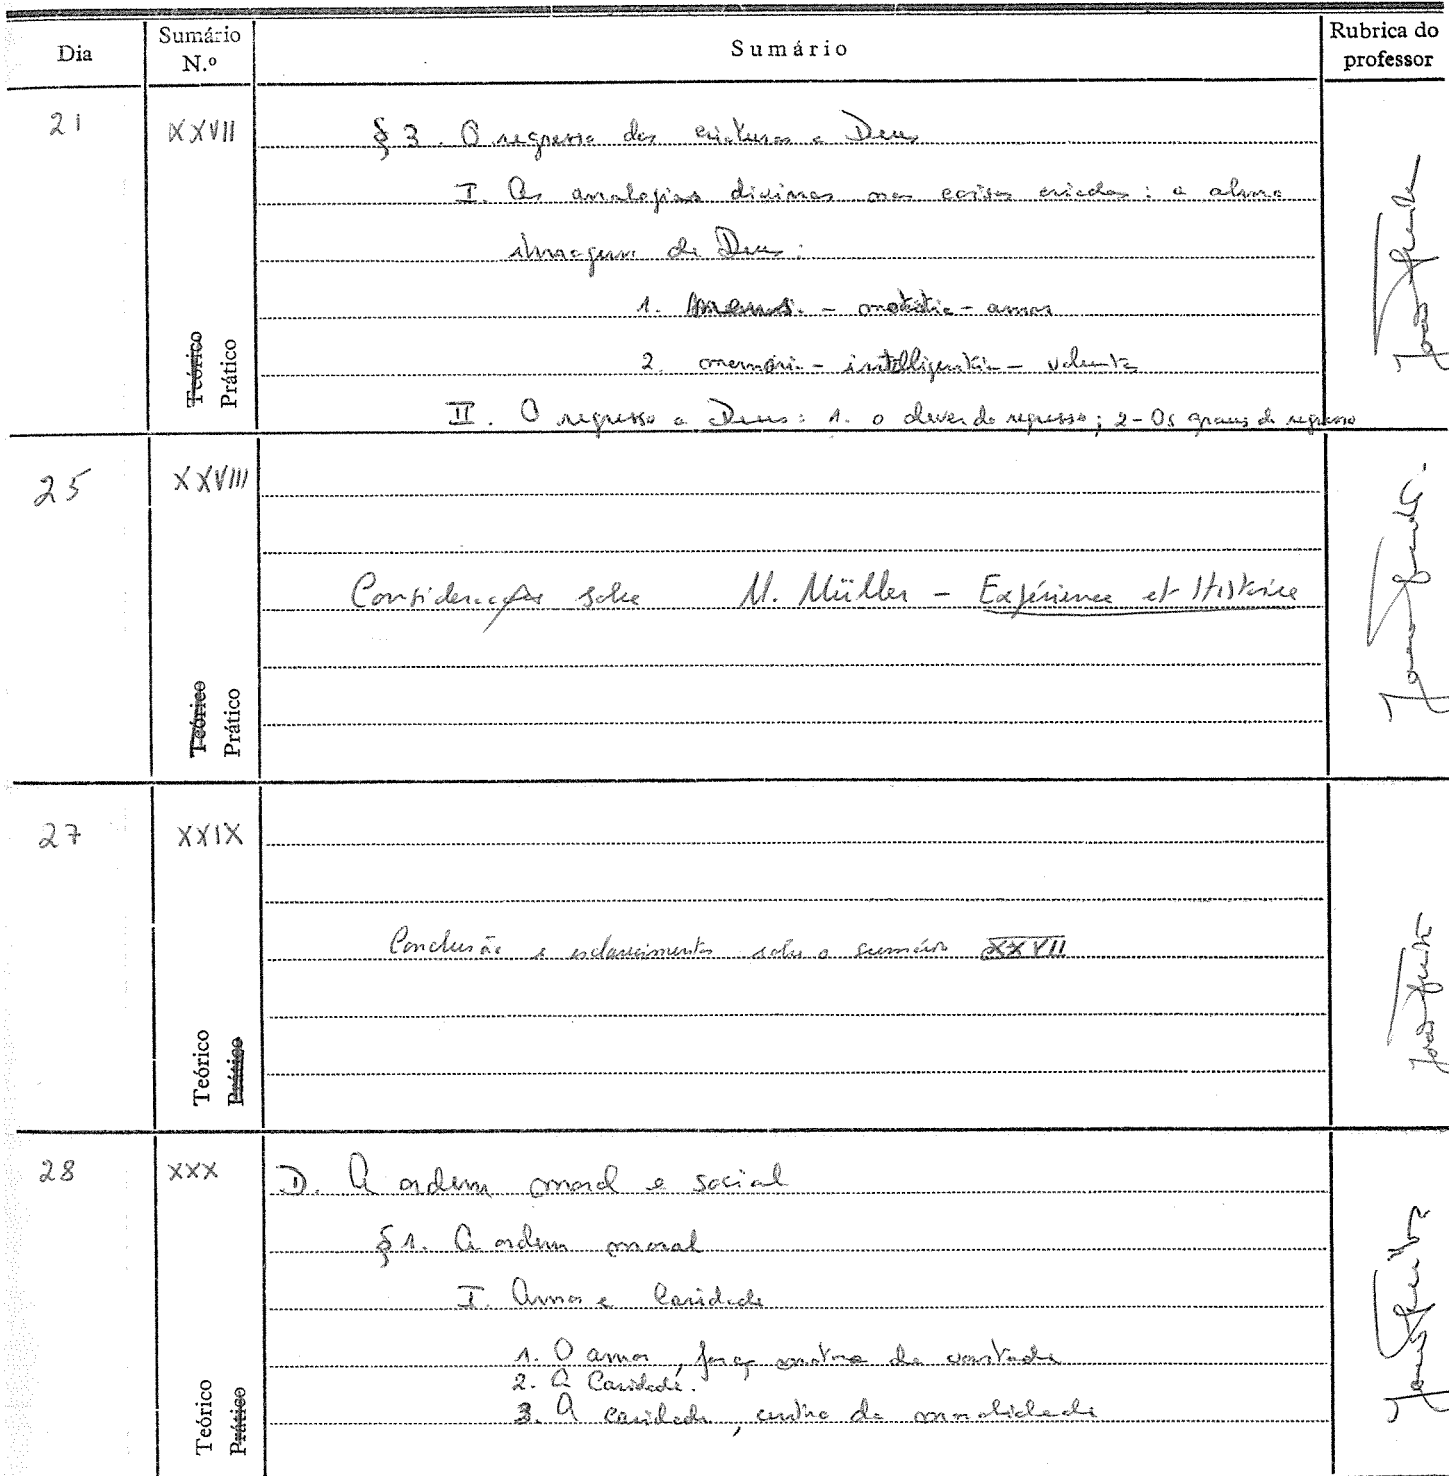 Dia
Sumário
N.º
Sumário
Rubrica do
professor
21
XXVII
§ 3. O regresso das criaturas a Deus
I. As analogias divinas nas coisas criadas: a alma
imagem de Deus:
1. mens - notitia - amor
2. memoria - intelligentia - voluntas
II. O regresso a Deus: 1. o dever do regresso; 2- Os graus do regresso
Teórico
Prático
25
XXVIII
Considerações sobre M. Müller - Expérience et Histoire
Teórico
Prático
27
XXIX
Conclusão e esclarecimentos sobre o sumário XXVII
Teórico
Prático
28
XXX
D. A ordem moral e social
§ 1. A ordem moral
I. Amor e Caridade
1. O amor, força motriz da vontade
2. A Caridade.
3. A caridade, centro da moralidade
Teórico
Prático